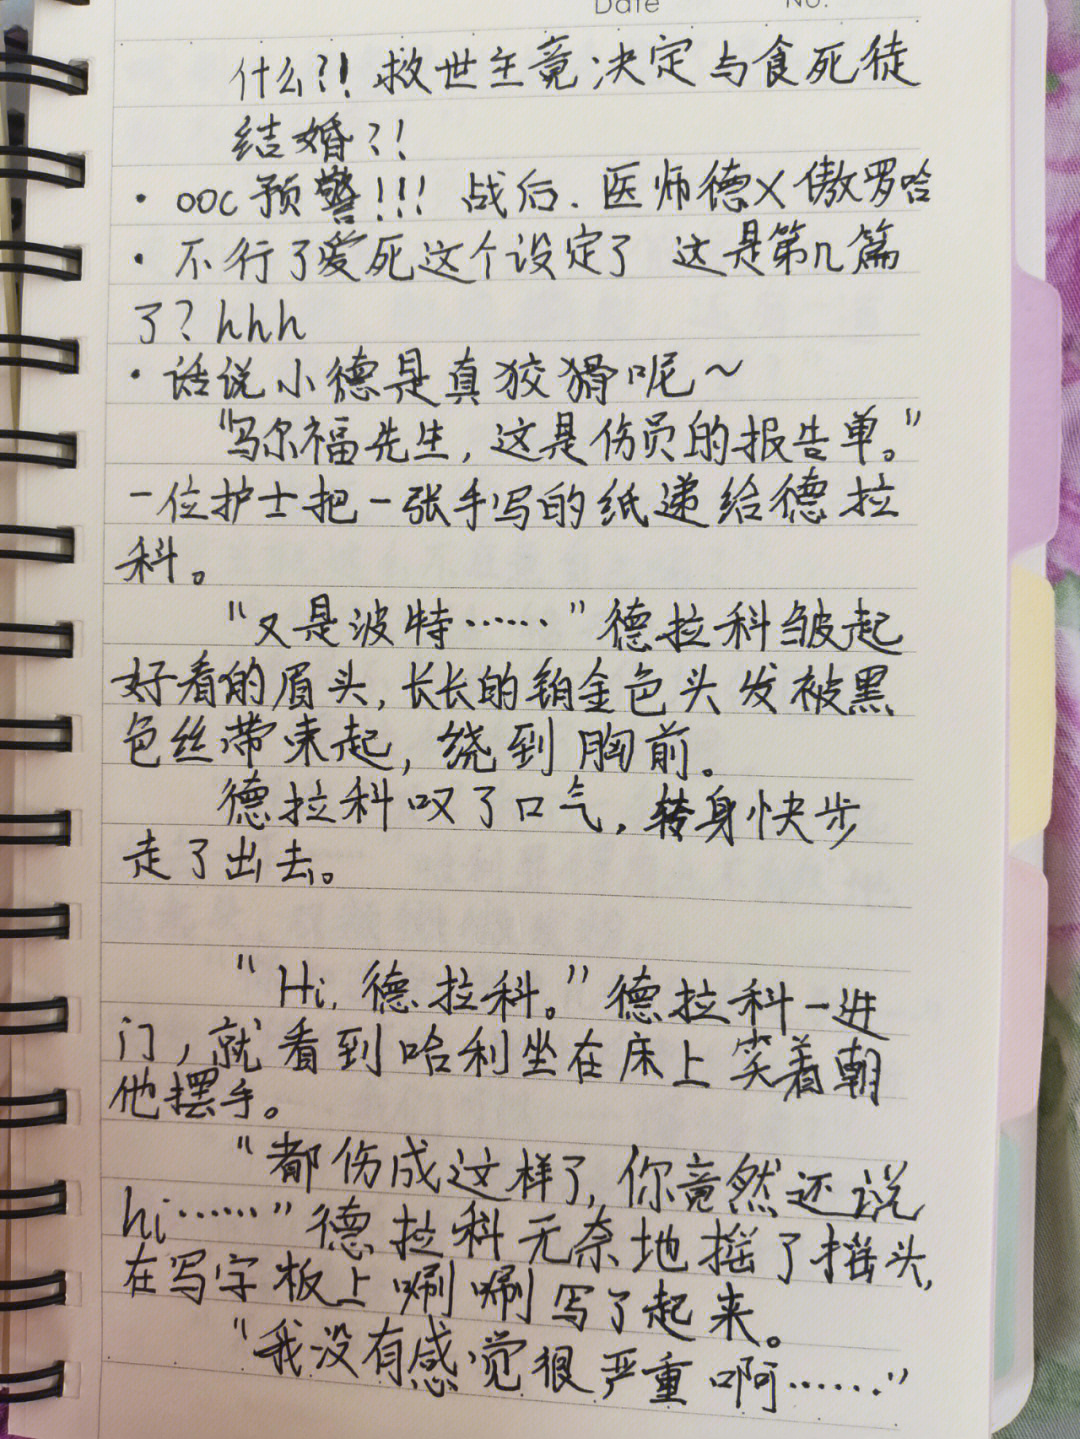 Date No.
什么?! 救世主竟决定与食死徒
结婚?!
· ooc预警!!! 战后. 医师德X傲罗哈
· 不行了爱死这个设定了 这是第几篇
了? hhh
· 话说小德是真狡猾呢~
"马尔福先生, 这是伤员的报告单。"
一位护士把一张手写的纸递给德拉
科。
"又是波特……"德拉科皱起
好看的眉头, 长长的铂金色头发被黑
色丝带束起, 绕到胸前。
德拉科叹了口气, 转身快步
走了出去。
"Hi, 德拉科。"德拉科一进
门, 就看到哈利坐在床上笑着朝
他摆手。
"都伤成这样了, 你竟然还说
hi……"德拉科无奈地摇了摇头,
在写字板上唰唰写了起来。
"我没有感觉很严重啊……"